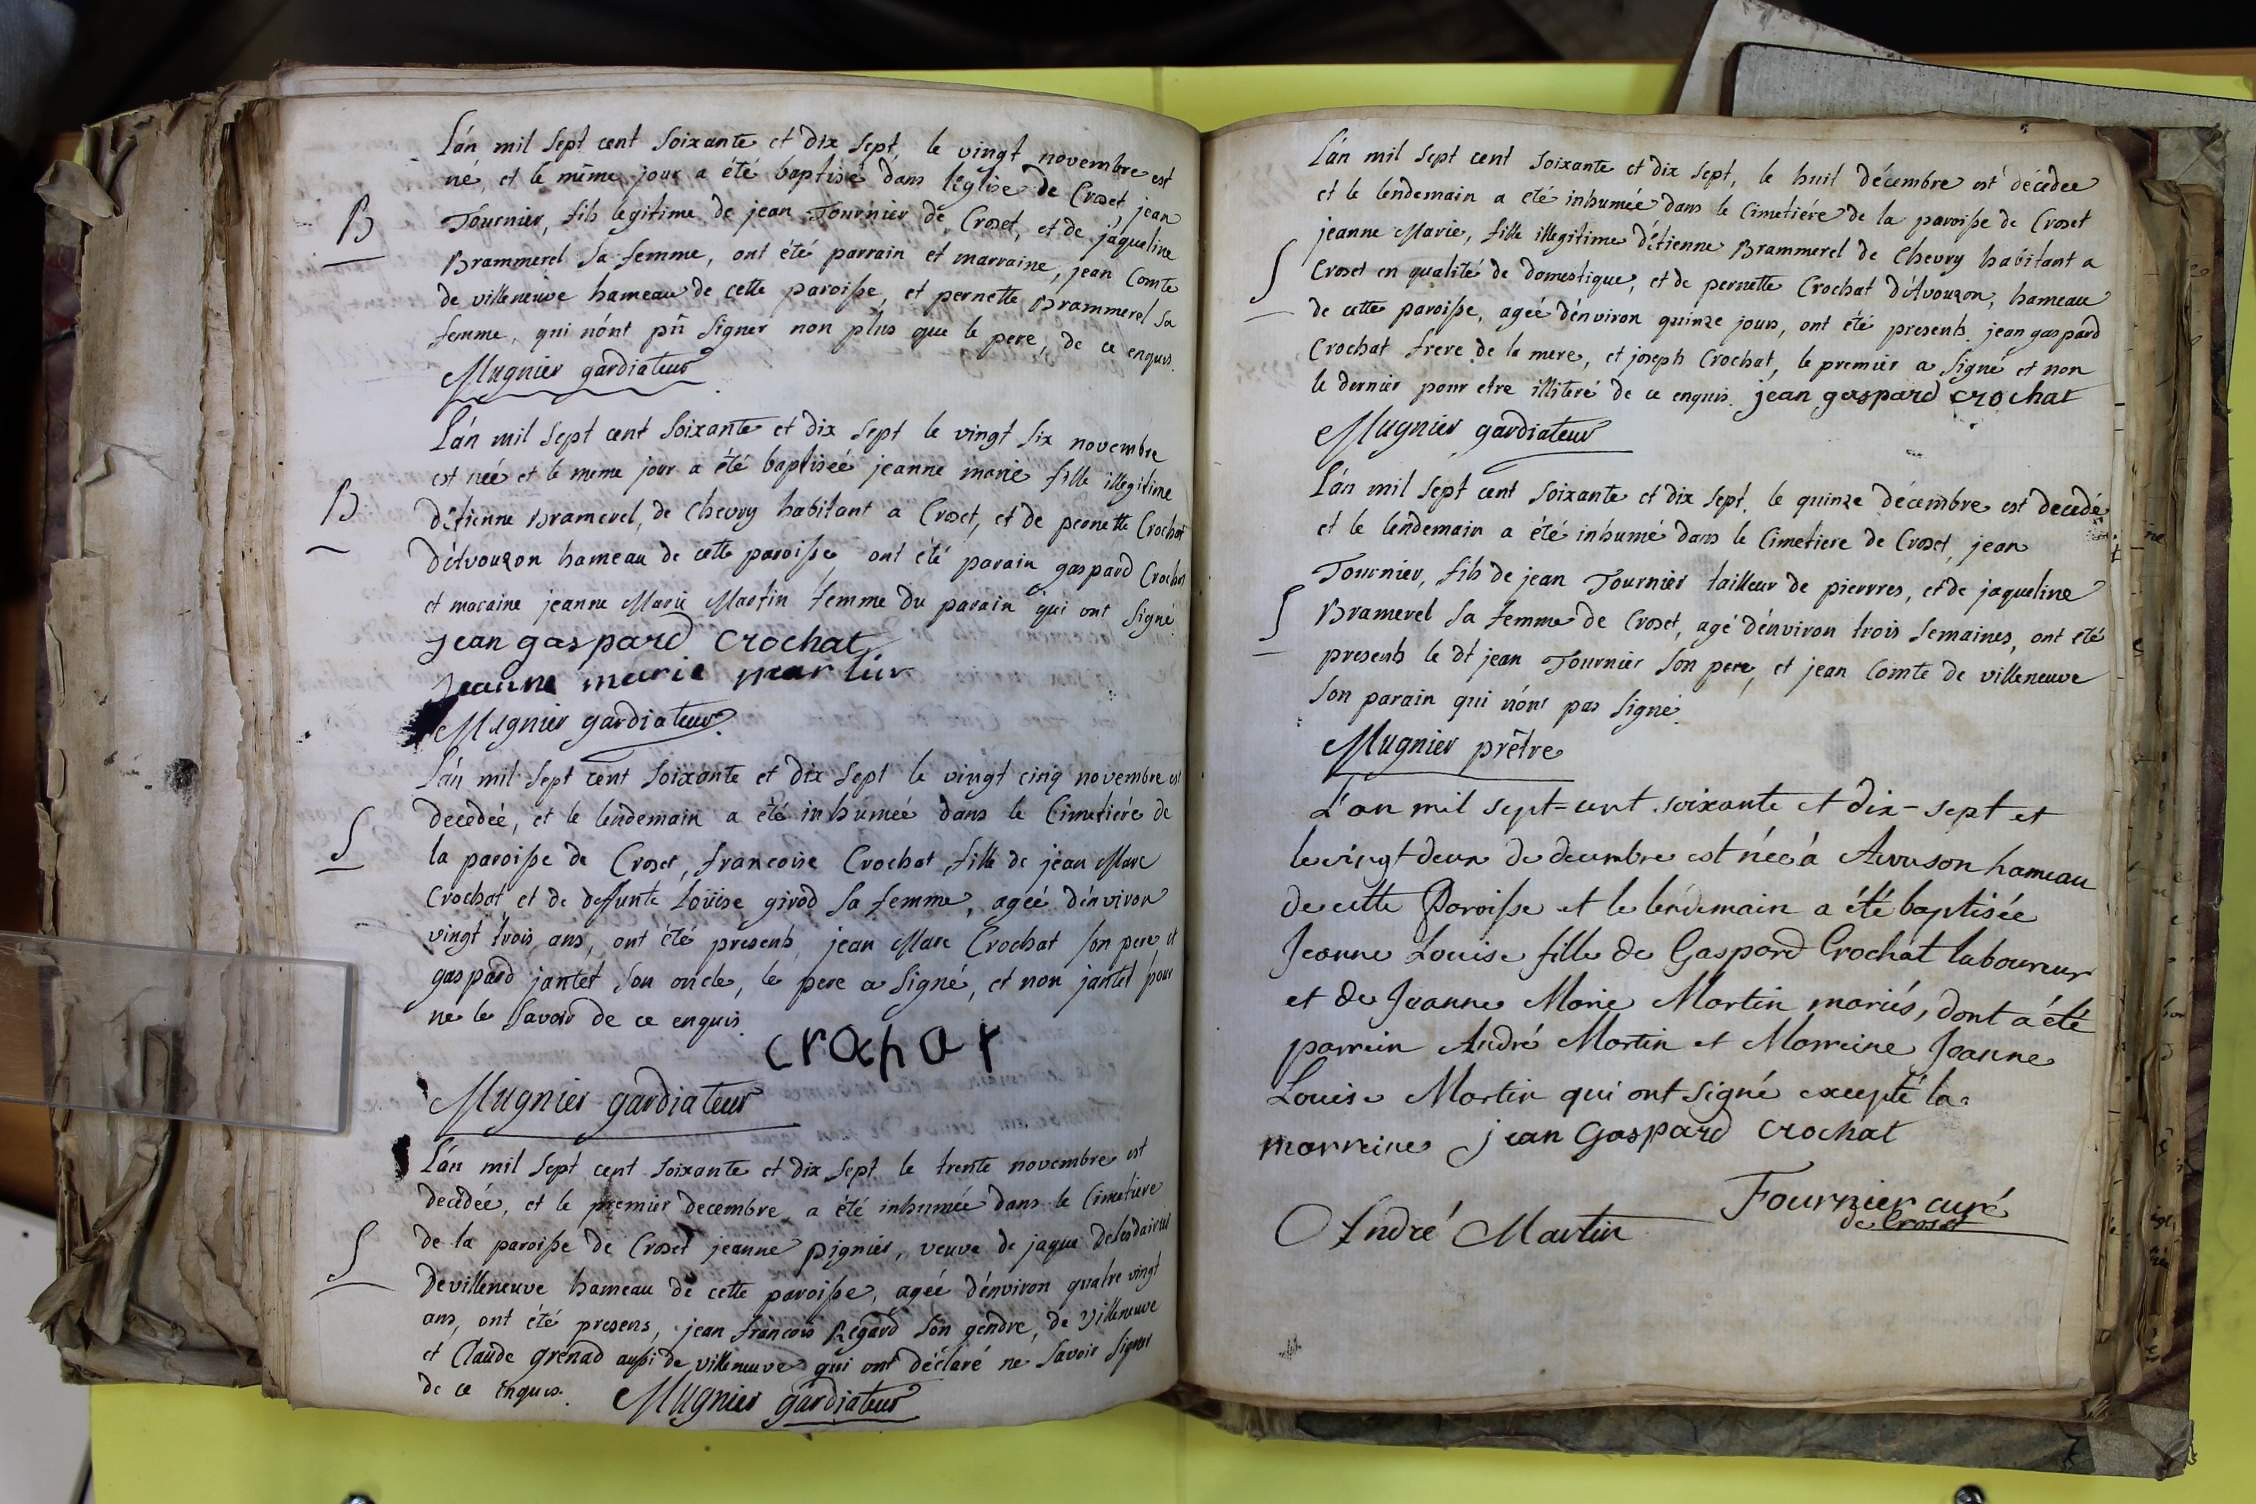 L'án mil sept cent soixante et dix sept, le vingt novembre est
né, et le même jour a été baptisé dans l'église de Croset, jean
B
Tournier, fils legitime de jean Tournier de Croset, et de jaqueline
Brammerel sa femme, ont été parrain et marraine, jean Comte
de villeneuve hameau de cette paroisse, et pernette Brammerel sa
femme, qui n'ónt pû signer non plus que le pere, de ce enquis.
Mugnier gardiateur
L'án mil sept cent soixante et dix sept le vingt six novembre
est née et le meme jour a été baptiseé jeanne marie fille illegitime
B
d'étienne Bramerel, de Chevry habitant a Croset, et de pernette Crochat
d'Avouzon hameau de cette paroisse, ont été parain gaspard Crochat
et maraine jeanne Marie Martin femme du parain qui ont signé
jean gaspard crochat
jeanne marie martin
Mugnier gardiateur.
L'án mil sept cent soixante et dix sept le vingt cinq novembre est
decedeé, et le lendemain a été inhumeé dans le Cimetiére de
S
la paroisse de Croset, francoise Crochat fille de jean Marc
Crochat et de deffunte Loüise girod sa femme, ageé d'énviron
vingt trois ans, ont été présents, jean Marc Crochat son pere et
gaspard jantet son oncle, le pere a signé, et non jantet pour
ne le savoir de ce enquis.
crochat
Mugnier gardiateur
L'án mil sept cent soixante et dix sept le trente novembre est
decedée, et le premier decembre a été inhumée dans le Cimetiere
S
de la paroisse de Croset jeanne pignier, veuve de jaque
de villeneuve hameau de cette paroisse, ageé d'énviron quatre vingt
ans, ont été presens, jean francois Regard son gendre, de villeneuve
et Claude grenad aussi de villeneuve qui ont déclaré ne savoir signer
de ce enquis. Mugnier gardiateur
L'án mil sept cent soixante et dix sept, le huit décembre est décedee
et le lendemain a eté inhumeé dans le Cimetiére de la paroisse de Croset
jeanne Marie, fille illegitime d'étienne Brammerel de Chevry habitant a
S
Croset en qualité de domestique, et de pernette Crochat d'Avouzon, hameau
de cette paroisse, ageé d'énviron quinze jours, ont été presents jean gaspard
Crochat frere de la mere, et joseph Crochat, le premier a signé et non
le dernier pour etre illiteré de ce enquis. jean gaspard crochat
Mugnier gardiateur
L'án mil sept cent soixante et dix sept, le quinze décembre est decedé
et le lendemain a été inhumé dans le Cimetiere de Croset, jean
Tournier, fils de jean Tournier tailleur de pierrres, et de jaqueline
S
Bramerel sa femme de Croset, agé d'énviron trois semaines, ont été
presents le dt jean Tournier son pere, et jean Comte de villeneuve
son parain qui n'ónt pas signé.
Mugnier prêtre
L'an mil sept=cent soixante et dix-sept et
le vingt deux de decembre est née à Avouson hameau
de cette Paroisse et le lendemain a été baptisée
Jeanne Louise fille de Gaspard Crochat laboureur
et de Jeanne Marie Martin mariés, dont a été
parrein André Martin et Marreine Jeanne
Louise Martin qui ont signé excepté la
marreine jean Gaspard crochat
Fournier curé
de Croset
André Martin